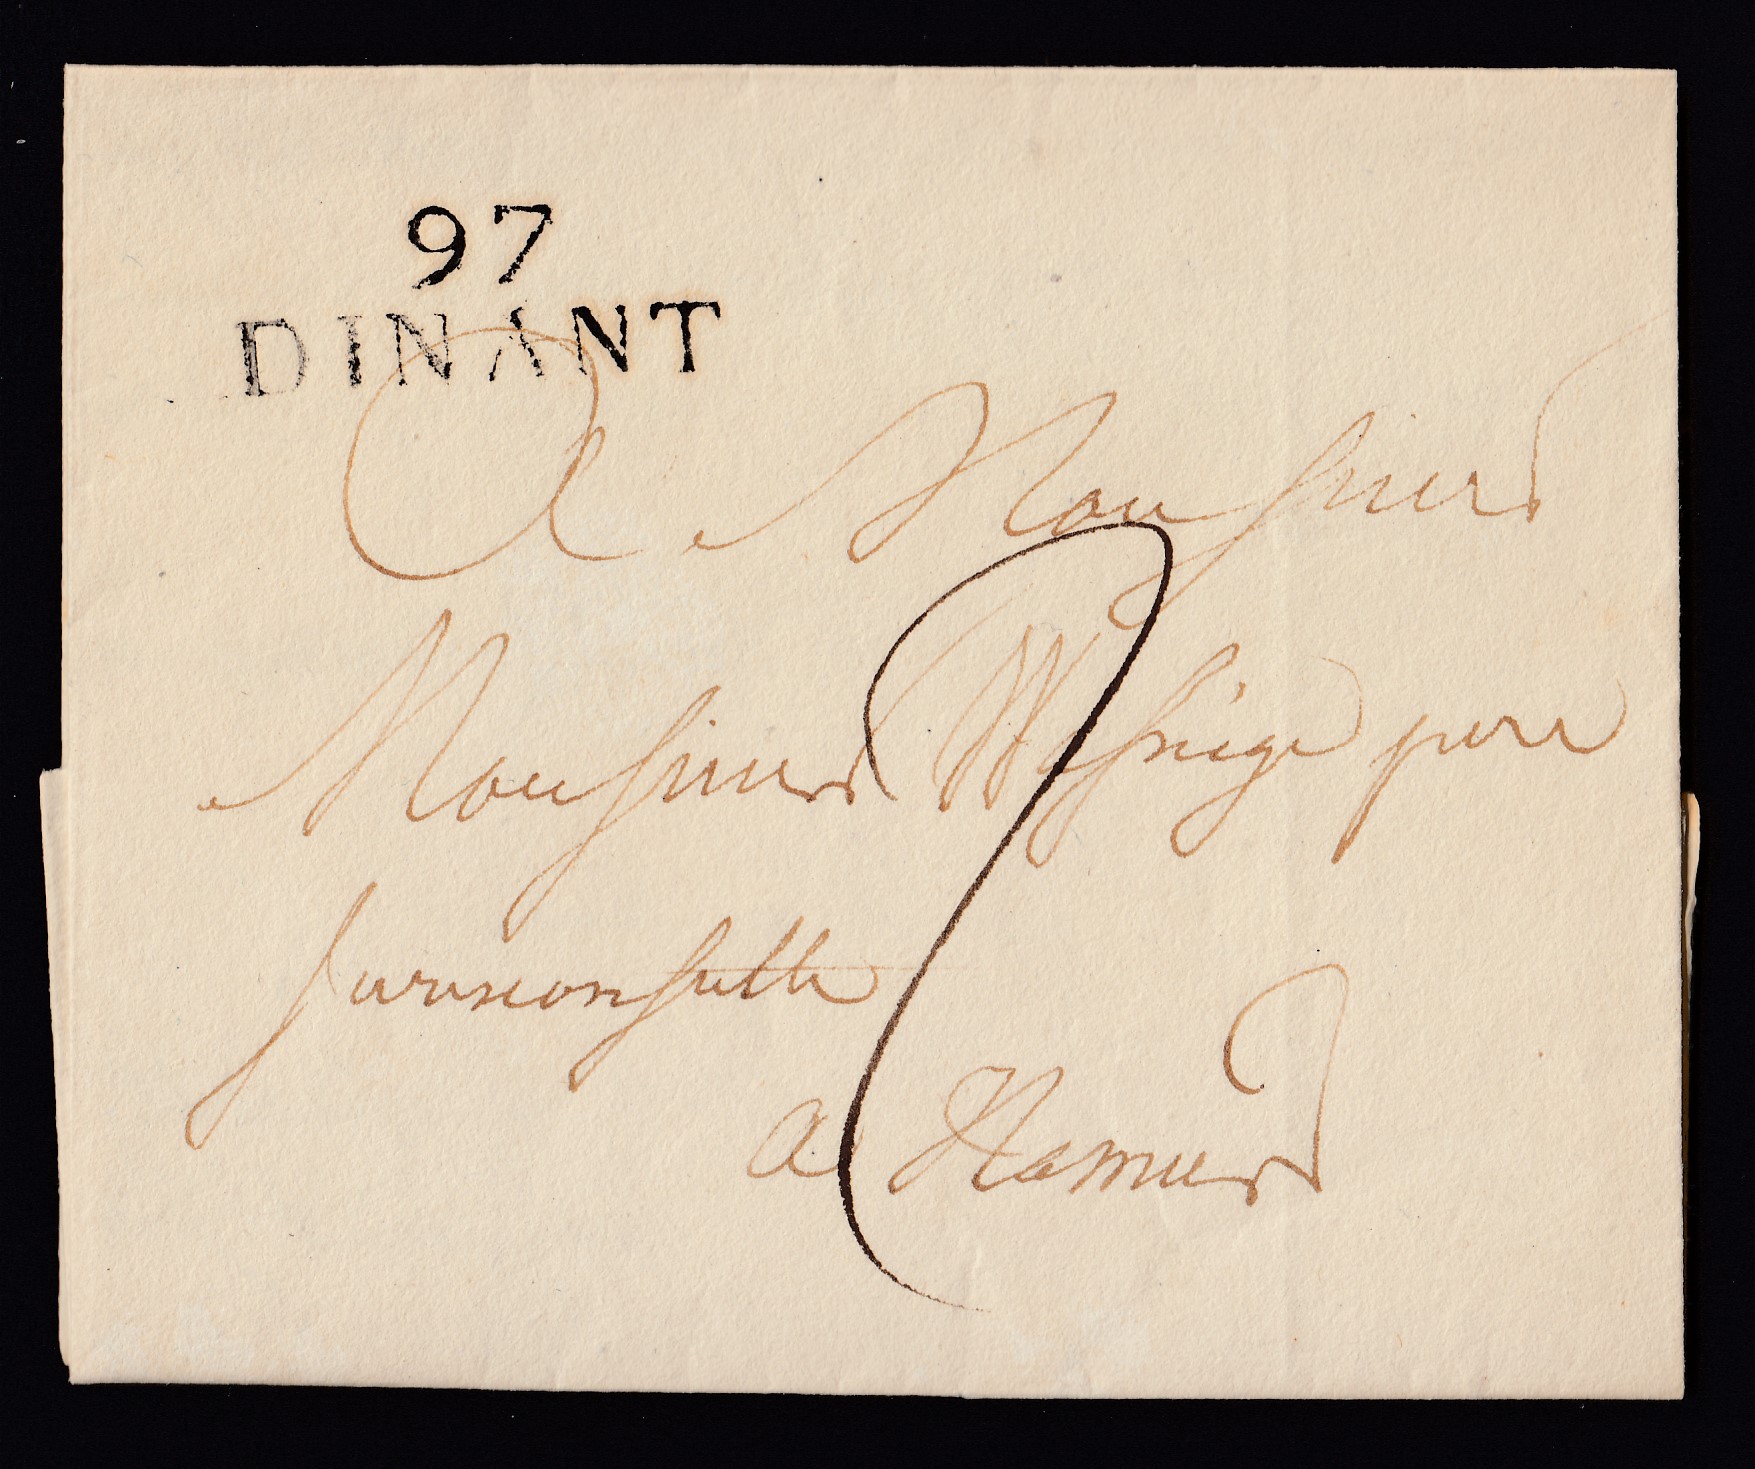 97
DINANT
A Monsieur
Monsieur Wasseige pere
Jurisconsulte
a Namur